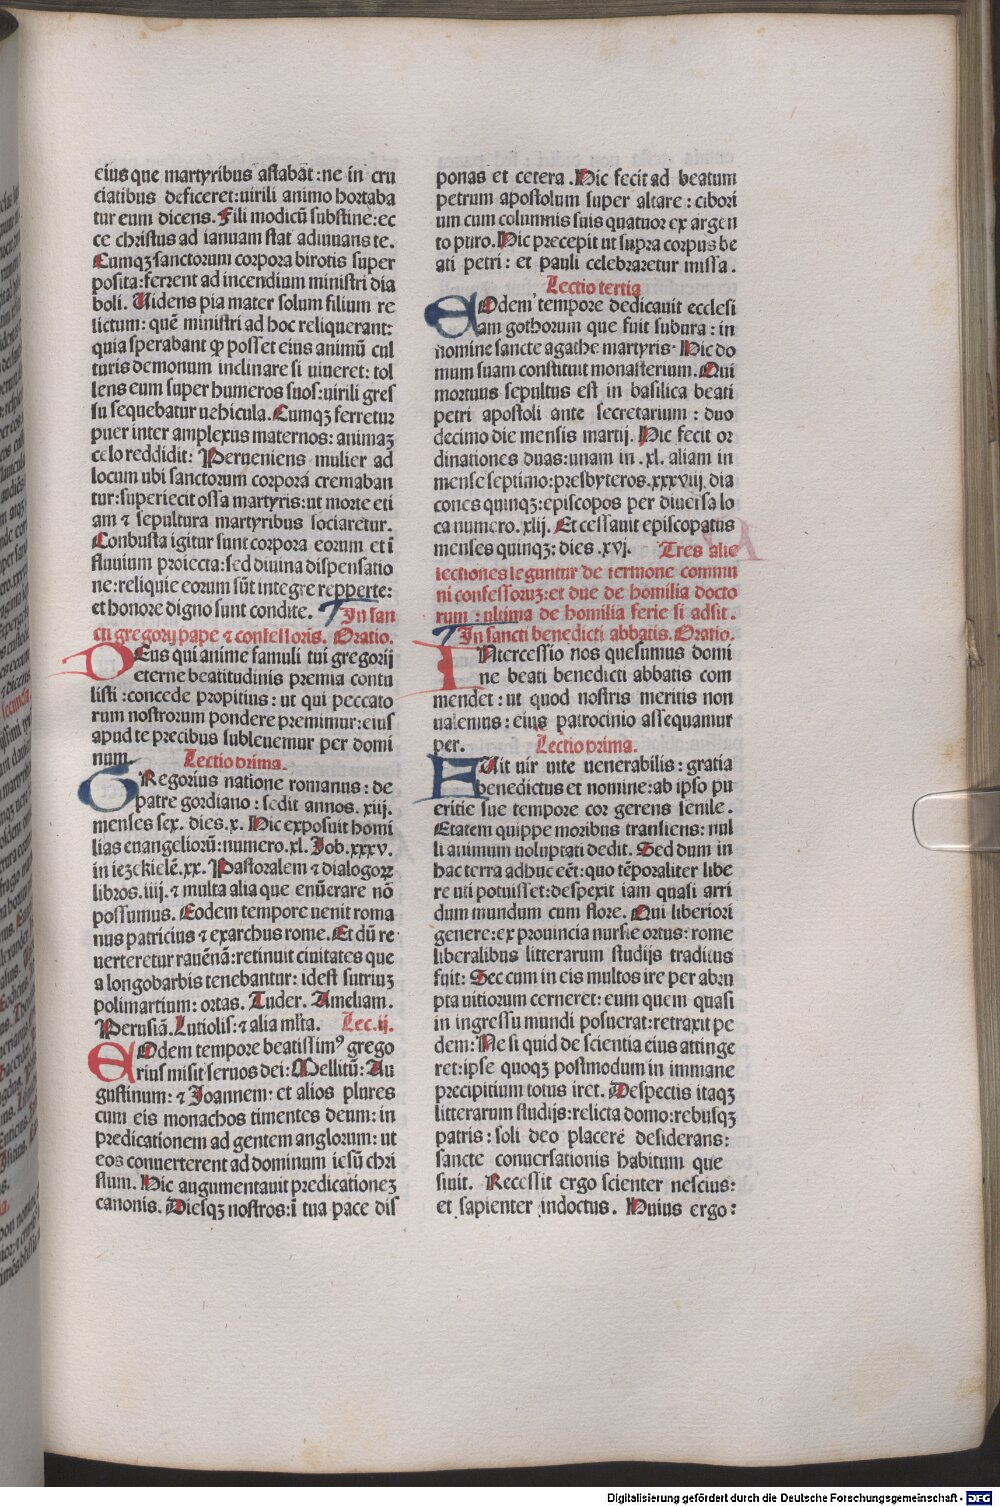 eius que martyribus astabāt : ne in cru
ciatibus deficeret : uirili animo hortaba
tur eum dicens. Fili modicū substine : ec
ce christus ad ianuam stat adiuuans te.
Cumqꝫ sanctorum corpora birotis super
posita : ferrent ad incendium ministri dia
boli. Uidens pia mater solum filium re
lictum : quē ministri ad hoc reliquerant :
quia sperabant ꝙ posset eius animū cul
turis demonum inclinare si uiueret : tol
lens eum super humeros suos : uirili gres
su sequebatur uehicula. Cumqꝫ ferretur
puer inter amplexus maternos : animaꝫ
celo reddidit : Perueniens mulier ad
locum ubi sanctorum corpora cremaban
tur : superiecit ossa martyris : ut morte eti
am ⁊ sepultura martyribus sociaretur.
Conbusta igitur sunt corpora eorum et ī
fluuium proiecta : sed diuina dispensatio
ne : reliquie eorum sūt integre repperte :
et honore digno sunt condite. In san
cti gregorij pape ⁊ confessoris. Oratio.
DEus qui anime famuli tui gregorij
eterne beatitudinis premia contu
listi : concede propitius : ut qui peccato
rum nostrorum pondere premimur : eius
apud te precibus subleuemur per domi
num. Lectio prima.
GRegorius natione romanus : de
patre gordiano : sedit annos. xiij.
menses sex. dies. x. Hic exposuit homi
lias euangeliorū : numero. xl. Job. xxxv.
in iezekielē. xx. Pastoralem ⁊ dialogoꝝ
libros. iiij. ⁊ multa alia que enūerare nō
possumus. Eodem tempore uenit roma
nus patricius ⁊ exarchus rome. Et dū re
uerteretur rauēnā : retinuit ciuitates que
a longobardis tenebantur : idest sutriuꝫ
polimartium : ortas. Tuder. Ameliam.
Perusiā. Lutiolis : ⁊ alia mlta. Lec. ij.
EOdem tempore beatissimꝰ grego
rius misit seruos dei : Mellitū : Au
gustinum : ⁊ Joannem : et alios plures
cum eis monachos timentes deum : in
predicationem ad gentem anglorum : ut
eos conuerterent ad dominum iesū chri
stum. Hic augumentauit predicationeꝫ
canonis. Diesqꝫ nostros : ī tua pace dis
ponas et cetera. Hic fecit ad beatum
petrum apostolum super altare : cibori
um cum columnis suis quatuor ex argen
to puro. Hic precepit ut supra corpus be
ati petri : et pauli celebraretur missa.
Lectio tertia
EOdem tempore dedicauit ecclesi
am gothorum que fuit subura : in
nomine sancte agathe martyris. Hic do
mum suam constituit monasterium. Qui
mortuus sepultus est in basilica beati
petri apostoli ante secretarium : duo
decimo die mensis martij. Hic fecit or
dinationes duas : unam in. xl. aliam in
mense septimo : presbyteros. xxxviij. dia
cones quinqꝫ : episcopos per diuersa lo
ca numero. xlij. Et cessauit episcopatus
menses quinqꝫ : dies. xvj. Tres alie
lectiones leguntur de sermone commu
ni confessoruꝫ : et due de homilia docto
rum : ultima de homilia ferie si adsit.
In sancti benedicti abbatis. Oratio.
INtercessio nos quesumus domi
ne beati benedicti abbatis com
mendet : ut quod nostris meritis non
ualemus : eius patrocinio assequamur
per. Lectio prima.
FUit uir uite uenerabilis : gratia
benedictus et nomine : ab ipso pu
eritie sue tempore cor gerens senile.
Etatem quippe moribus transiens : nul
li animum uoluptati dedit. Sed dum in
hac terra adhuc eēt : quo tēporaliter libe
re uti potuisset : despexit iam quasi arri
dum mundum cum flore. Qui liberiori
genere : ex prouincia nursie ortus : rome
liberalibus litterarum studijs traditus
fuit : Sec cum in eis multos ire per abru
pta uitiorum cerneret : eum quem quasi
in ingressu mundi posuerat : retraxit pe
dem : Ne si quid de scientia eius attinge
ret : ipse quoqꝫ postmodum in immane
precipitium totus iret. Despectis itaqꝫ
litterarum studijs : relicta domo : rebusqꝫ
patris : soli deo placere desiderans :
sancte conuersationis habitum que
siuit. Recessit ergo scienter nescius :
et sapienter indoctus. Huius ergo :
Digitalisierung gefördert durch die Deutsche Forschungsgemeinschaft - DFG